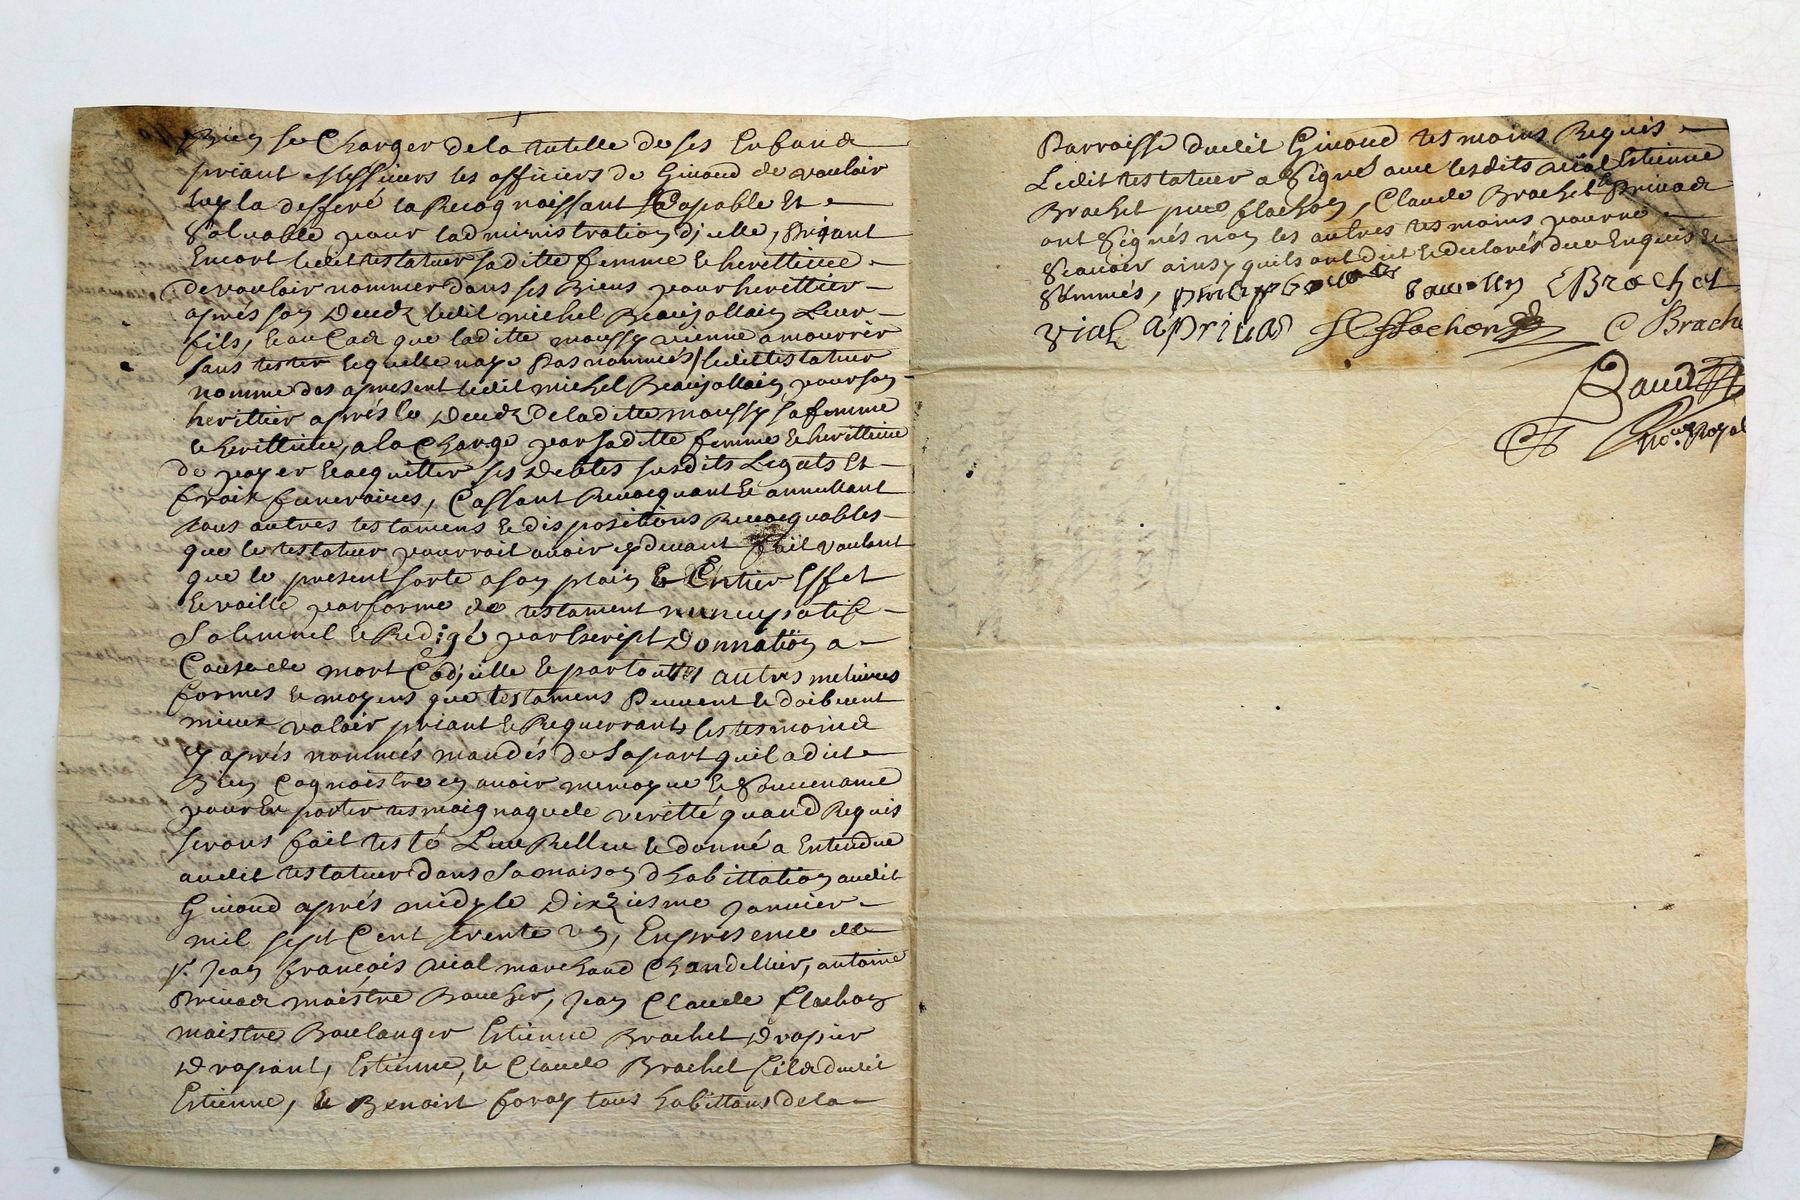 Bien se Charger de la tutelle de ses Enfans
priant les officiers de Givord de vouloir
luy la defferé la Recognoissant Capable Et
Solvable pour ladministration dicelle, Priant
Encort ledit testateur saditte femme & herettiere
de vouloir nommer dans ses Biens pour herettier
aprés son Decedz ledit michel Beaujollain Leur
fils, & au Cas que laditte moussy vienne a mourrir
sans tester & quelle naye Pas nommés, ledit testateur
nomme des apresent ledit michel Beaujollain pour son
herittier aprés le Decedz de laditte moussy sa femme
& herittiere, a la Charge par saditte femme & herittiere
de payer & acquitter ses Debtes susdits Legats Et
fraix funeraires, Cassant Revocquant & annullant
tous autres testamens & dispositions Revocquables
que le testateur pourroit avoir cydevant fait voulant
que le present sorte a son plain & Entier Effet
& vaille par forme de testament nuncupatif
Solemnel & Redigé par Escript Donnation a
Cause de mort Codicille & par touttes autres melieures
formes & moyens que testamens Peuvent & doibvent
mieux valoir priant & Requerrant les tesmoins
cy aprés nommés mandés de sa part quil a dit
Bien Cognoistre en avoir memoyre & Souvenance
pour En porter tesmoignage de veritté quand Requis
seront fait testé Leu Relleu & donné a Entendre
audit testateur Dans Sa maison dhabittation audit
Givord aprés midy le Dixziesme Janvier
mil sept Cent trente un, En presence de
sr. Jean françois vial marchand Chandellier, antoine
Privas maistre Boucher, Jean Claude flachon
maistre Boulanger Estienne Brachet Drapier
Drapant, Estienne, & Claude Brachet fils dudit
Estienne, & Benoist foray tous habittans de la
Parroisse dudit Givord tesmoins Requis
Ledit testateur a Signé avec lesdits vial Estienne
Brachet flachon, Claude Brachet & Privas
ont Signés non les autres tesmoins pour ne
Scavoir ainsy quils ont dit & declarés de ce Enquis &
Sommés, E Brachet
vial A privas flachon C Brachet
Royal